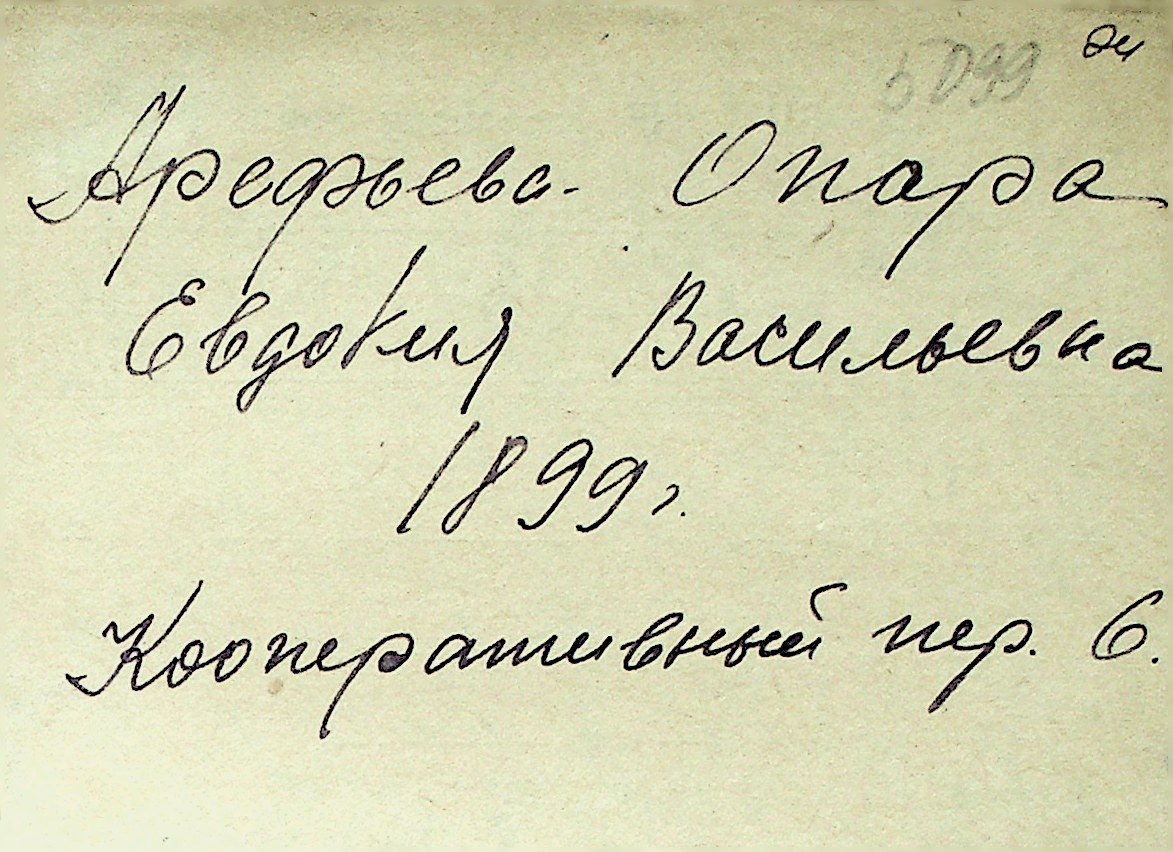 Арефьева- Опара
Евдокия Васильевна
1899г.
Кооперативный пер. 6.